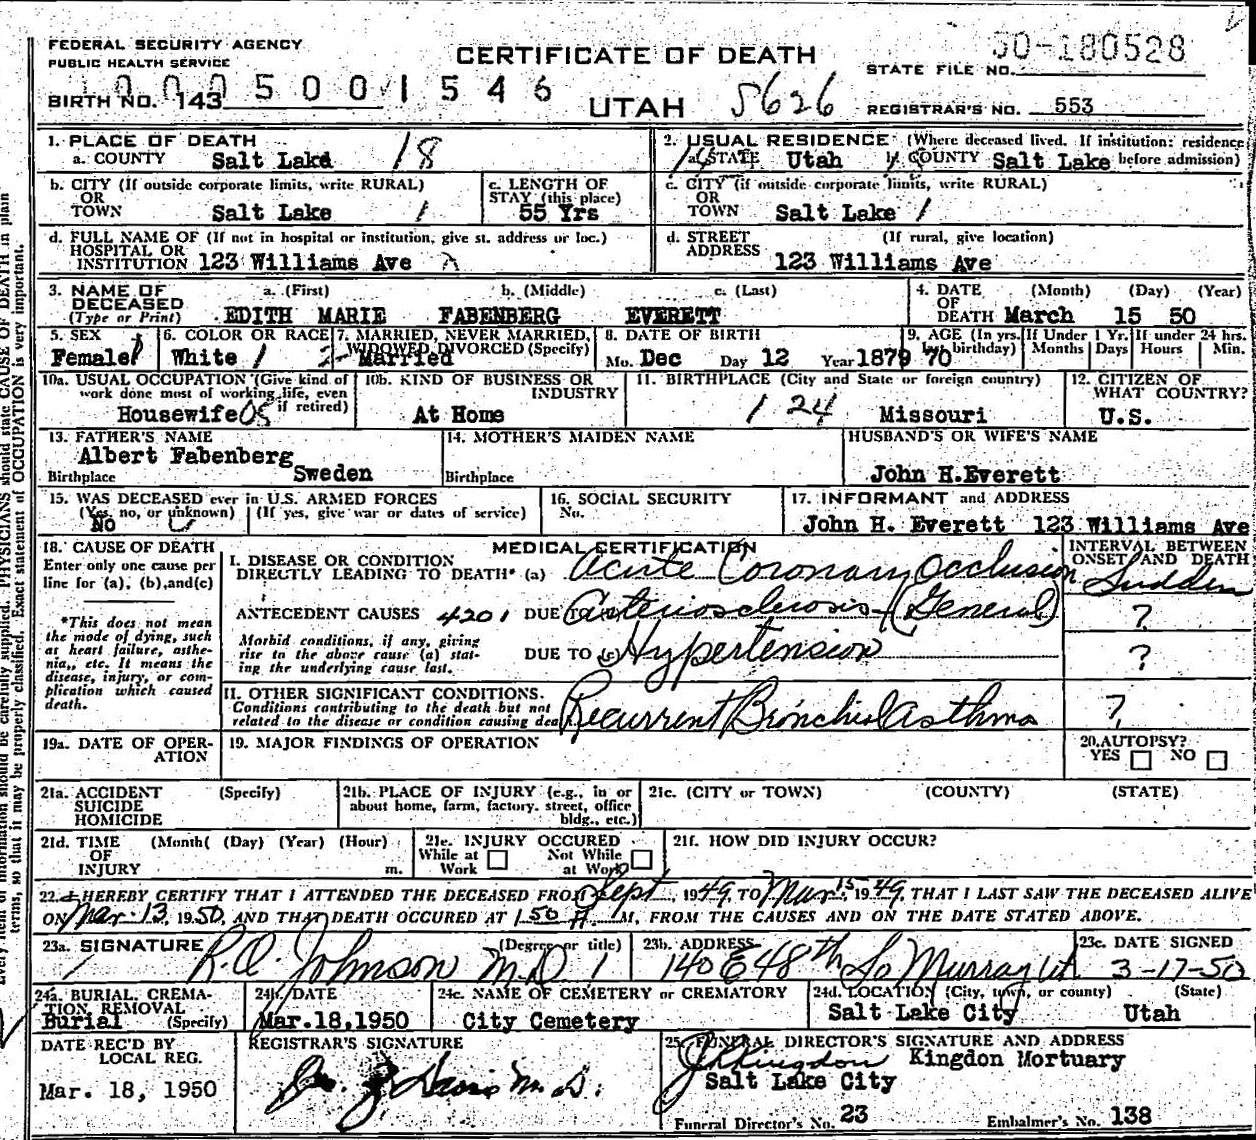 FEDERAL SECURITY AGENCY
PUBLIC HEALTH SERVICE
CERTIFICATE OF DEATH
50-180528
STATE FILE NO.
0005001546
BIRTH NO. 143
UTAH 5626
REGISTRAR'S NO. 553
1. PLACE OF DEATH
a. COUNTY Salt Lake 18
2. USUAL RESIDENCE (Where deceased lived. If institution: residence before admission)
a. STATE Utah COUNTY Salt Lake
b. CITY (If outside corporate limits, write RURAL)
OR
TOWN Salt Lake 1
c. LENGTH OF
STAY (this place)
55 Yrs
c. CITY (if outside corporate limits, write RURAL)
OR
TOWN Salt Lake 1
d. FULL NAME OF (If not in hospital or institution, give st. address or loc.)
HOSPITAL OR
INSTITUTION 123 Williams Ave
d. STREET (If rural, give location)
ADDRESS
123 Williams Ave
3. NAME OF a. (First) b. (Middle) c. (Last)
DECEASED
(Type or Print) EDITH MARIE FABENBERG EVERETT
4. DATE (Month) (Day) (Year)
OF
DEATH March 15 50
5. SEX
Female 1
6. COLOR OR RACE
White 1
7. MARRIED, NEVER MARRIED,
WIDOWED DIVORCED (Specify)
2- Married
8. DATE OF BIRTH
Mo. Dec Day 12 Year 1879
9. AGE (In yrs. last birthday) 70
If Under 1 Yr. Months Days
If under 24 hrs. Hours Min.
10a. USUAL OCCUPATION (Give kind of
work done most of working life, even
if retired)
Housewife 05
10b. KIND OF BUSINESS OR
INDUSTRY
At Home
11. BIRTHPLACE (City and State or foreign country)
1 24 Missouri
12. CITIZEN OF
WHAT COUNTRY?
U.S.
13. FATHER'S NAME
Albert Fabenberg
Birthplace Sweden
14. MOTHER'S MAIDEN NAME
Birthplace
HUSBAND'S OR WIFE'S NAME
John H.Everett
15. WAS DECEASED ever in U.S. ARMED FORCES
(Yes, no, or unknown) (If yes, give war or dates of service)
No
16. SOCIAL SECURITY
No.
17. INFORMANT and ADDRESS
John H. Everett 123 Williams Ave
18. CAUSE OF DEATH
Enter only one cause per
line for (a), (b), and (c)
*This does not mean
the mode of dying, such
as heart failure, asthe-
nia,, etc. It means the
disease, injury, or com-
plication which caused
death.
MEDICAL CERTIFICATION
INTERVAL BETWEEN
ONSET AND DEATH
I. DISEASE OR CONDITION
DIRECTLY LEADING TO DEATH* (a) Acute Coronary Occlusion Sudden
ANTECEDENT CAUSES 4201 DUE TO Arteriosclerosis-(General) ?
Morbid conditions, if any, giving
rise to the above cause (a) stat-
ing the underlying cause last.
DUE TO (c) Hypertension ?
II. OTHER SIGNIFICANT CONDITIONS.
Conditions contributing to the death but not
related to the disease or condition causing death.
Recurrent Bronchial Asthma ?
19a. DATE OF OPER-
ATION
19. MAJOR FINDINGS OF OPERATION
20. AUTOPSY?
YES NO
21a. ACCIDENT (Specify)
SUICIDE
HOMICIDE
21b. PLACE OF INJURY (e.g., in or
about home, farm, factory, street, office
bldg., etc.)
21c. (CITY or TOWN) (COUNTY) (STATE)
21d. TIME (Month( (Day) (Year) (Hour)
OF
INJURY m.
21e. INJURY OCCURED
While at Work Not While at Work
21f. HOW DID INJURY OCCUR?
22. I HEREBY CERTIFY THAT I ATTENDED THE DECEASED FROM Sept, 1949, TO Mar 15, 1949, THAT I LAST SAW THE DECEASED ALIVE
ON Mar. 13, 1950, AND THAT DEATH OCCURED AT 1 50 A. M., FROM THE CAUSES AND ON THE DATE STATED ABOVE.
23a. SIGNATURE (Degree or title)
R.O. Johnson M.D. 1
23b. ADDRESS
140 E 48th So Murray Ut
23c. DATE SIGNED
3-17-50
24a. BURIAL, CREMA-
TION, REMOVAL
Burial (Specify)
24b. DATE
Mar.18,1950
24c. NAME OF CEMETERY or CREMATORY
City Cemetery
24d. LOCATION (City, town, or county) (State)
Salt Lake City Utah
DATE REC'D BY
LOCAL REG.
Mar. 18, 1950
REGISTRAR'S SIGNATURE
M.D.
25. FUNERAL DIRECTOR'S SIGNATURE AND ADDRESS
Kingdon Kingdon Mortuary
Salt Lake City
Funeral Director's No. 23 Embalmer's No. 138
Every item of information should be carefully supplied. PHYSICIANS should state CAUSE OF DEATH in plain
terms, so that it may be properly classified. Exact statement of OCCUPATION is very important.